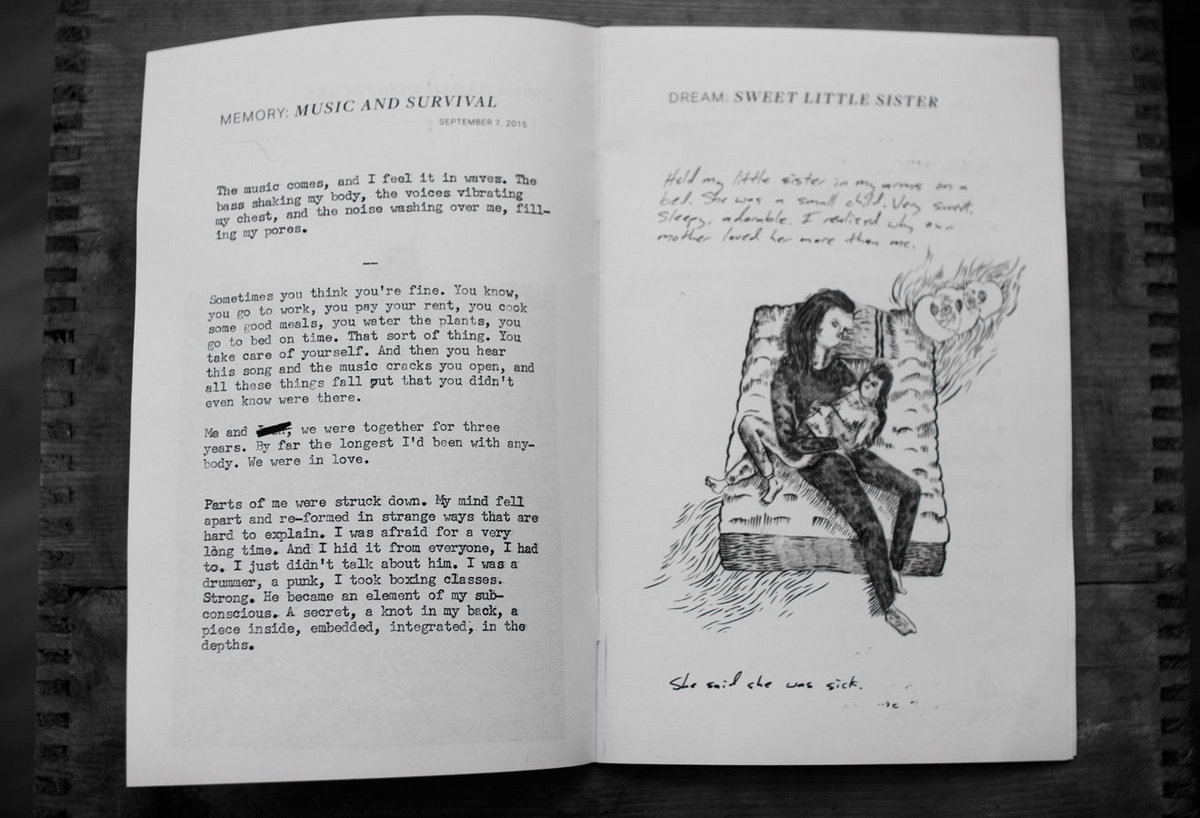 MEMORY: MUSIC AND SURVIVAL
SEPTEMBER 7, 2015
The music comes, and I feel it in waves. The
bass shaking my body, the voices vibrating
my chest, and the noise washing over me, fill-
ing my pores.
—
Sometimes you think you're fine. You know,
you go to work, you pay your rent, you cook
some good meals, you water the plants, you
go to bed on time. That sort of thing. You
take care of yourself. And then you hear
this song and the music cracks you open, and
all these things fall out that you didn't
even know were there.
Me and , we were together for three
years. By far the longest I'd been with any-
body. We were in love.
Parts of me were struck down. My mind fell
apart and re-formed in strange ways that are
hard to explain. I was afraid for a very
long time. And I hid it from everyone, I had
to. I just didn't talk about him. I was a
drummer, a punk, I took boxing classes.
Strong. He became an element of my sub-
conscious. A secret, a knot in my back, a
piece inside, embedded, integrated, in the
depths.
DREAM: SWEET LITTLE SISTER
Held my little sister in my arms on a
bed. She was a small child. Very sweet.
Sleepy, adorable. I realized why our
mother loved her more than me.
She said she was sick.